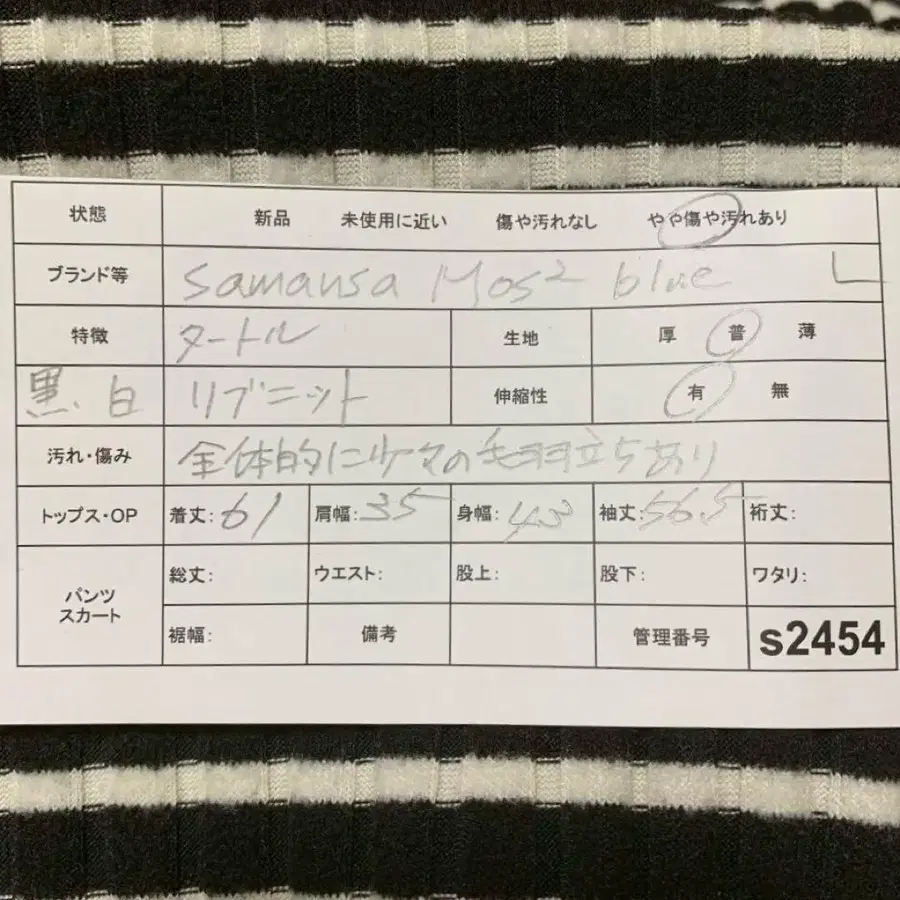 状態 新品 未使用に近い 傷や汚れなし やや傷や汚れあり
ブランド等 samansa Mos2 blue L
特徴 タートル 生地 厚 普 薄
黒.白 リブニット 伸縮性 有 無
汚れ・傷み 全体的に少々の毛羽立ちあり
トップス・OP 着丈: 61 肩幅: 35 身幅: 43 袖丈: 56.5 裄丈:
パンツ スカート 総丈: ウエスト: 股上: 股下: ワタリ:
裾幅: 備考 管理番号 s2454